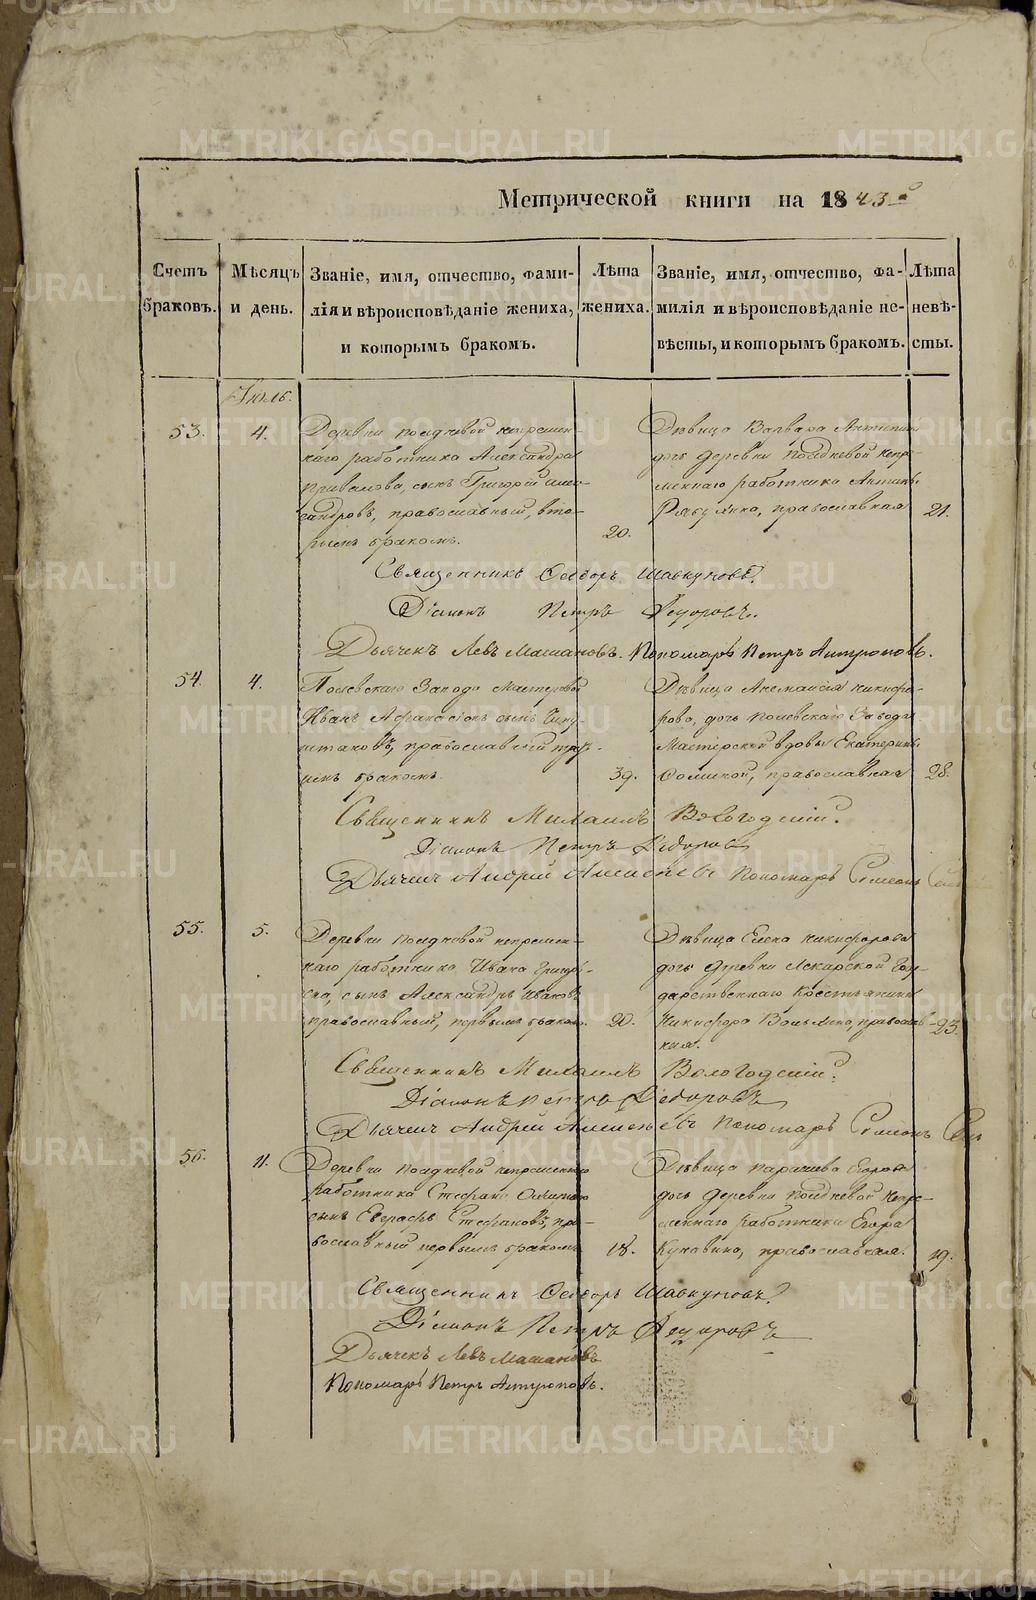 Метрической книги на 1843й
Счетъ браковъ.
Мѣсяцъ и день.
Званіе, имя, отчество, фами-
лія и вѣроисповѣданіе жениха,
и которымъ бракомъ.
Лѣта
жениха.
Званіе, имя, отчество, фа-
милія и вѣроисповѣданіе не-
вѣсты, и которымъ бракомъ.
Лѣта
невѣ-
сты.
Іюль.
53.
4.
Деревни непремен-
наго работника Александра
сынъ Григорій Алек-
сандровъ, православный, вто-
рымъ бракомъ.
20.
Дѣвица Варвара Антипина
дочь деревни непре-
меннаго работника Антипа
православная
21.
Священникъ Феодоръ Шавкуновъ.
Діаконъ Петръ Федоровъ.
Дьячекъ Левъ Пономарь Петръ
54.
4.
Полевскаго Завода Мастеровой
Иванъ сынъ
православный
бракомъ.
39.
Дѣвица Никифо-
рова, дочь Полевскаго Завода
Мастерской вдовы Екатерины
православная
28.
Священникъ Михаилъ Вологодскій.
Діаконъ Петръ Федоровъ
Дьячекъ Андрей Алексѣевъ Пономарь Симеонъ
55.
5.
Деревни непремен-
наго работника Ивана Григорь-
ева, сынъ Александръ Ивановъ
православный, первымъ бракомъ.
20.
Дѣвица Елена Никифорова
дочь деревни Госу-
дарственнаго Крестьянина
Никифора православ-
ная.
23.
Священникъ Михаилъ Вологодскій.
Діаконъ Петръ Федоровъ
Дьячекъ Андрей Алексѣевъ Пономарь Симеонъ
56.
11.
Деревни непременнаго
работника Стефана
сынъ Евграфъ Стефановъ, пра-
вославный первымъ бракомъ
18.
Дѣвица Егорова
дочь деревни непре-
меннаго работника Егора
православная.
19.
Священникъ Феодоръ Шавкуновъ.
Діаконъ Петръ Федоровъ
Дьячекъ Левъ
Пономарь Петръ
METRIKI.GASO-URAL.RU